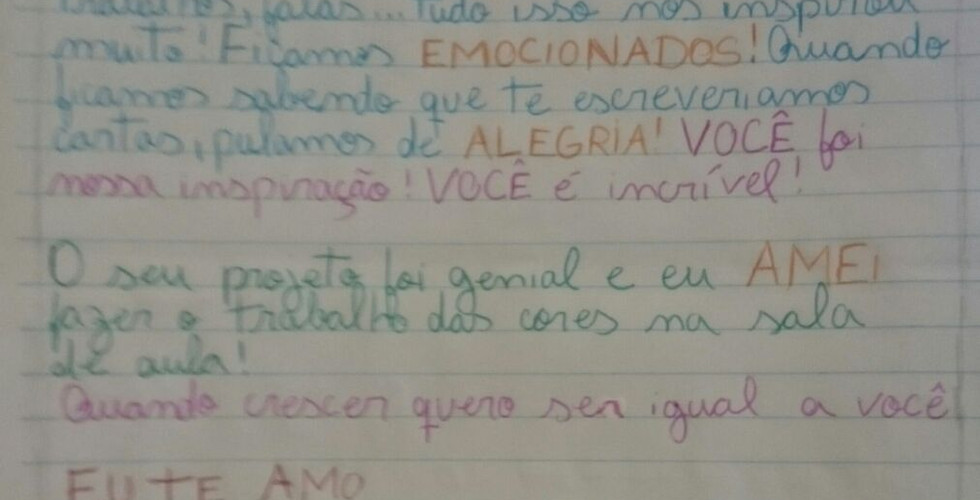 trabalhos, falas... Tudo isso nos inspirou
muito! Ficamos EMOCIONADOS! Quando
ficamos sabendo que te escreveriamos
cartas, pulamos de ALEGRIA! VOCÊ foi
nossa inspiração! VOCÊ é incrível!
O seu projeto foi genial e eu AMEI
fazer o trabalho das cores na sala
de aula!
Quando crescer quero ser igual a você
EU TE AMO